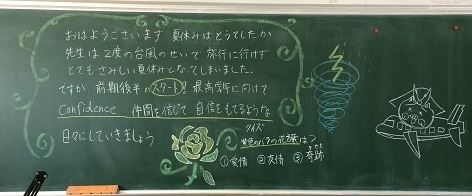 おはようございます 夏休みはどうでしたか
先生は2度の台風のせいで 旅行に行けず
とてもさみしい夏休みとなってしまいました。
ですが 前期後半のスタート! 最高学年に向けて
Confidence 仲間を信じて 自信をもてるような
日々にしていきましょう
クイズ
黄色のバラの花言葉は?
①愛情 ②友情 ③奇跡
きせき